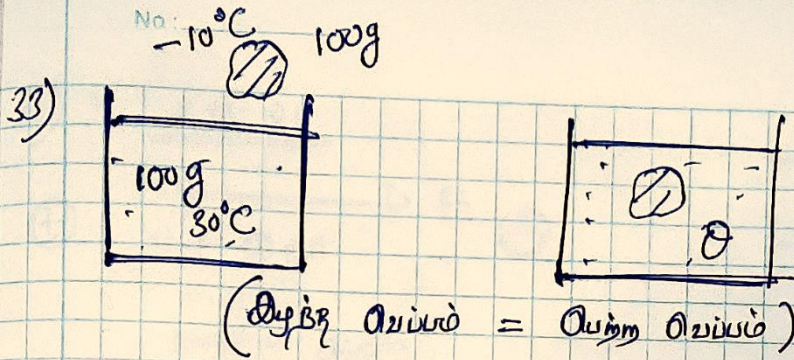 No:
-10°C 100g
33)
100g
30°C
θ
(இழந்த வெப்பம் = பெற்ற வெப்பம்)